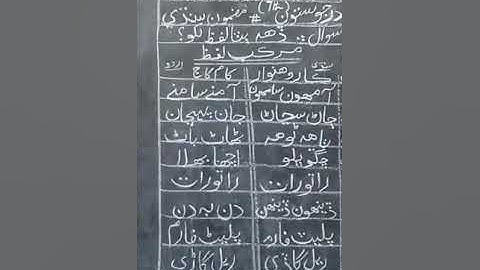 درجو ستون (7th) # مضمون سنڌي
سوال :- ڏهہ ٻٽا لفظ لکو؟
مرڪب لفظ
سنڌي اردو
ڪاروهنوار کام کاج
آمهون سامهون آمنے سامنے
ڄاڻ سڃاڻ جان پہچان
ٺاهہ ٺوهہ ٹھاٹ باٹ
چڱو ڀلو اچھا بھلا
راتورات راتورات
ڏينهون ڏينهن دن بہ دن
پليٽ فارم پلیٹ فارم
ريل گاڏي ریل گاڑی